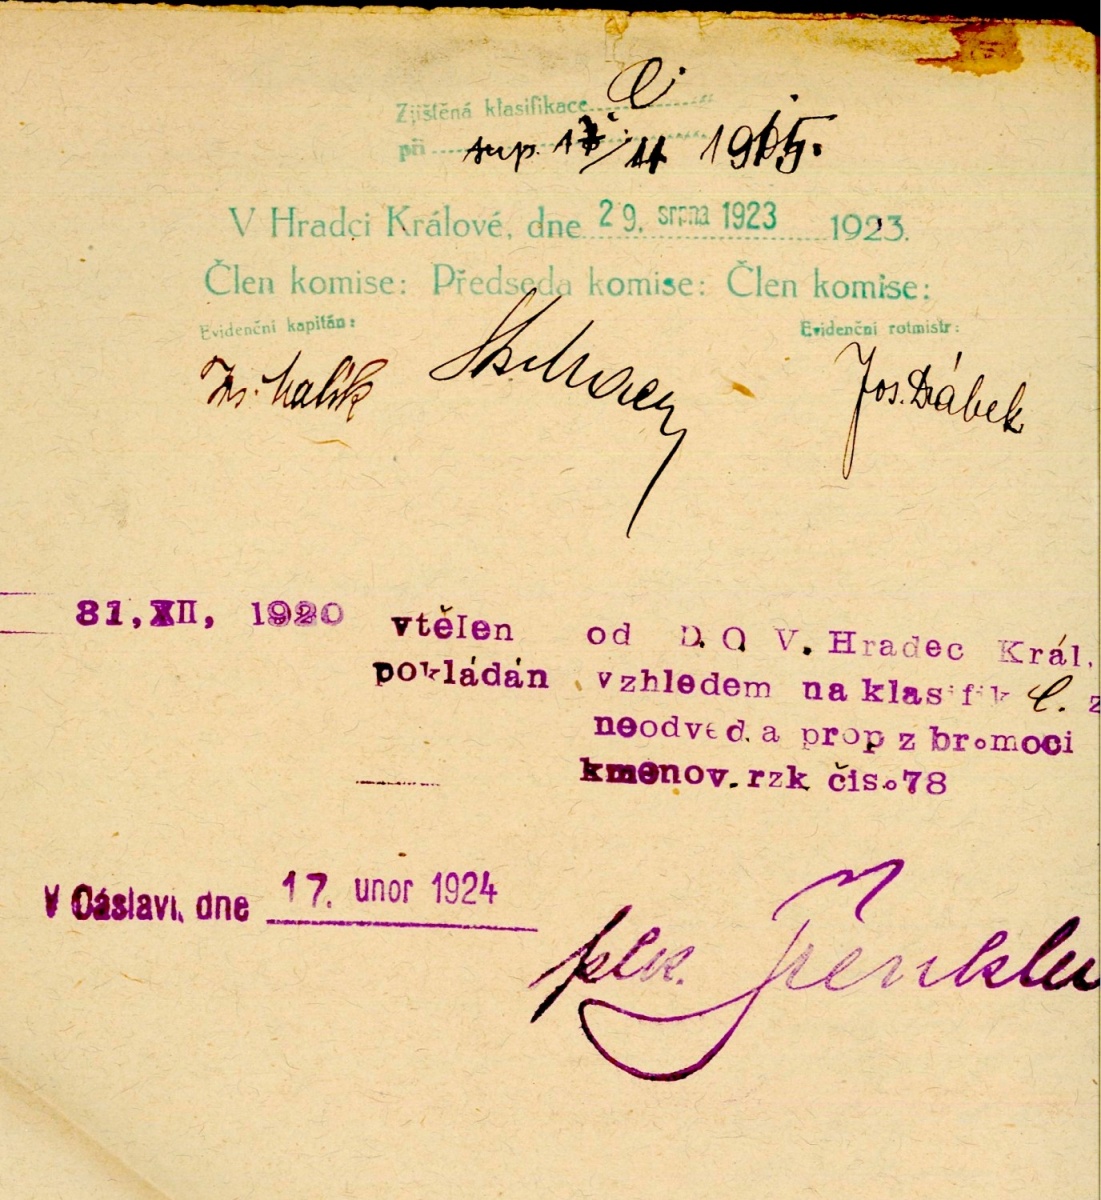 Zjištěná klasifikace C.
při sup. 1 /4 1915.
V Hradci Králové, dne 29. srpna 1923 1923.
Člen komise: Předseda komise: Člen komise:
Evidenční kapitán: Evidenční rotmistr:
Malík Jos. Drábek
31, XII, 1920 vtělen od D. O V. Hradec Král.
pokládán vzhledem na klasifik C. z
neodved. a prop z br. moci
kmenov. rzk čís. 78
V Čáslavi, dne 17. únor 1924
plk.